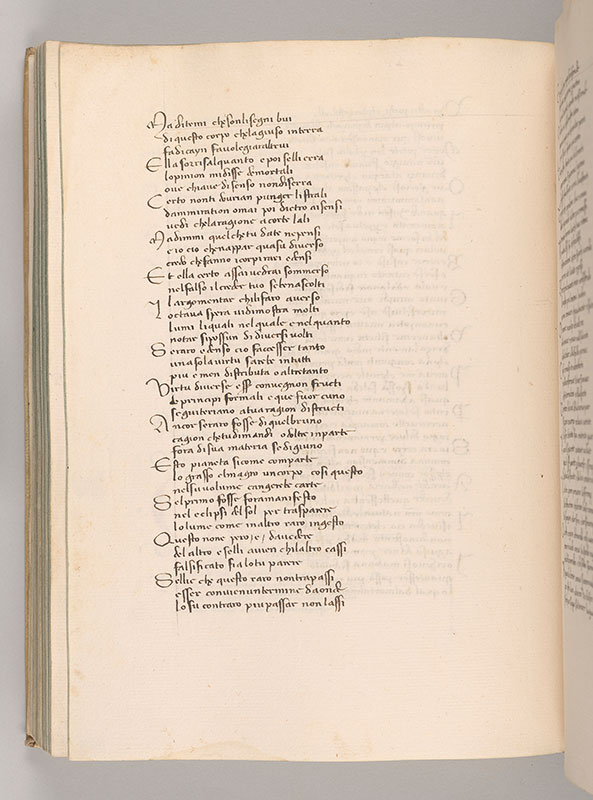 Ma ditemi che son li segni bui
di questo corpo che lagiuso in terra
fa di cayn favolegiar altrui
Ella sorrise alquanto e poi selli erra
lopinion mi disse de mortali
ove chiave di senso non diserra
Certo non ti dovrian punger li strali
dammiration omai poi dietro ai sensi
vedi che la ragione a corte lali
Ma dimmi quel che tu da te ne pensi
e io cio che nappar quasu diverso
credo che fanno i corpi rari e densi
Et ella certo assai vedrai sommerso
nel falso il creder tuo se bene ascolti
Il argomentar chili faro averso
Loctava spera vi dimostra molti
lumi li quali nel quale e nel quanto
notar si posson di diversi volti
Se raro e denso cio facesser tanto
una sola virtu sarebe in tutti
piu e men distributa o altretanto
Virtu diverse esser convegnon fructi
de principi formali e que fuor cuno
seguiteriano a tua ragion distructi
Ancor se raro fosse di quel bruno
cagion che tu dimandi o doltre in parte
fora di sua materia se digiuno
Esto pianeta si come comparte
lo grasso el magro un corpo cosi questo
nel suo volume cangerebe carte
Sel primo fosse fora manifesto
nel eclipsi del sol per trasparere
lo lume come in altro raro ingesto
Questo none pero e da vedere
del altro e selli avien chi laltro cassi
falsificato fia lo tu parere
Selli e che questo raro non trapassi
esser convien un termine da onde
lo su contraro piu passar non lassi